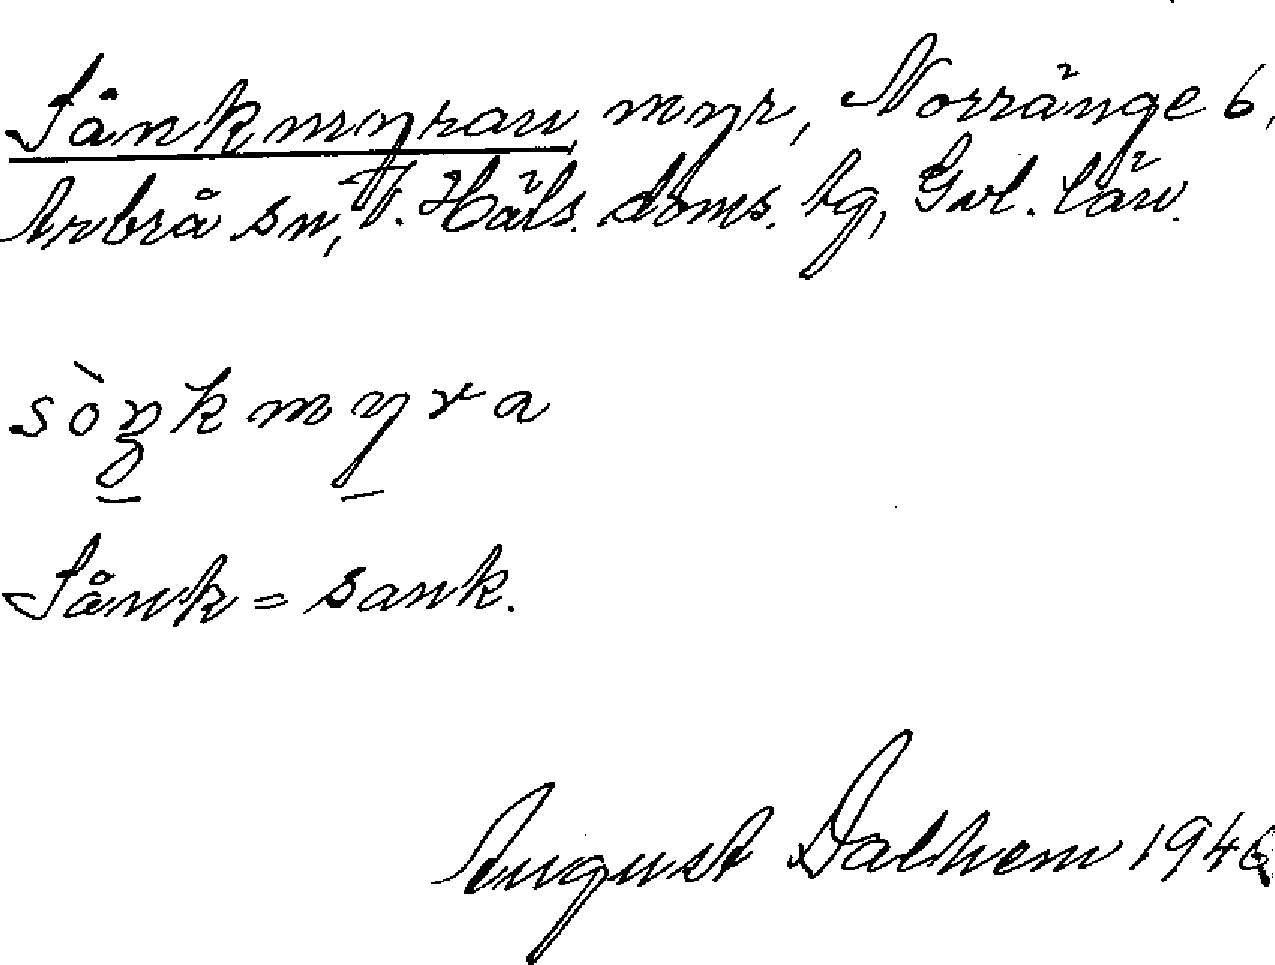 Sånkmyran, myr, Norränge 6,
Arbrå sn, V. Häls. doms. tg, Gvl. län.
sònkmyra
Sånk = sank.
August Dalhem 1946